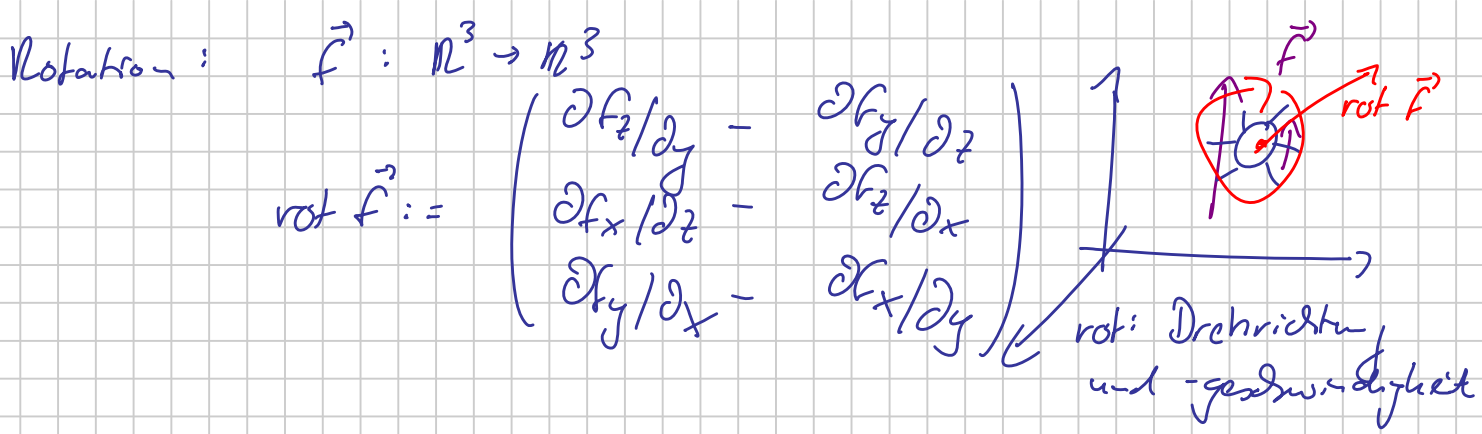 Rotation: f⃗ : ℝ³ → ℝ³
rot f⃗ := ( ∂f_z/∂y - ∂f_y/∂z
∂f_x/∂z - ∂f_z/∂x
∂f_y/∂x - ∂f_x/∂y )
f⃗
rot f⃗
rot: Drehrichtung
und -geschwindigkeit